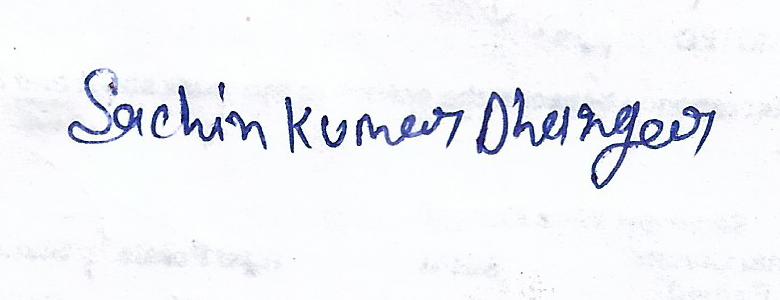 Sachin Kumar Dhangar